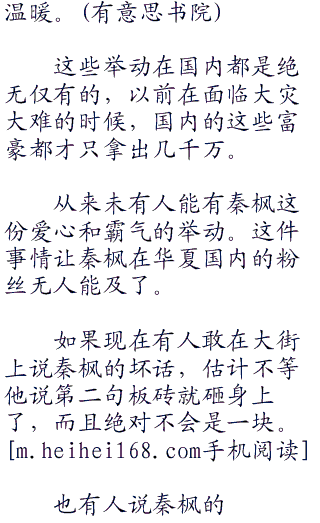 温暖。(有意思书院)
这些举动在国内都是绝
无仅有的，以前在面临大灾
大难的时候，国内的这些富
豪都才只拿出几千万。
从来未有人能有秦枫这
份爱心和霸气的举动。这件
事情让秦枫在华夏国内的粉
丝无人能及了。
如果现在有人敢在大街
上说秦枫的坏话，估计不等
他说第二句板砖就砸身上
了，而且绝对不会是一块。
[m.heihei168.com手机阅读]
也有人说秦枫的